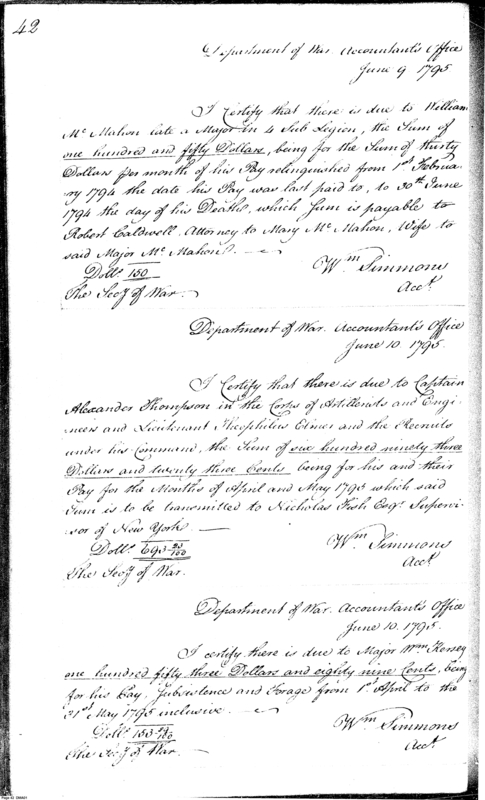 42
Department of War. Accountant's Office
June 9 1795
I Certify that there is due to William
Mc Mahon late a Major in 4 Sub Legion, the Sum of
one hundred and fifty Dollars, being for the Sum of thirty
Dollars per month of his Pay relinquished from 1st Februa
ry 1794 the date his Pay was last paid to, to 30th June
1794 the day of his Death, which Sum is payable to
Robert Caldwell. Attorney to Mary Mc Mahon, Wife to
said Major Mc Mahon.
Dolls. 150
Wm Simmons
Acct.
The Secy of War.
Department of War. Accountant's Office
June 10. 1795.
I Certify that there is due to Captain
Alexander Thompson in the Corps of Artillerists and Engi-
neers and Lieutenant Theophilus Elmer and the Recruits
under his Command, the Sum of six hundred ninety three
Dollars and twenty three Cents being for his and their
Pay for the Months of April and May 1795 which said
Sum is to be transmitted to Nicholas Fish Esqr. Supervi-
sor of New York.
Dolls. 693 23/100
Wm Simmons
Acct.
The Secy of War.
Department of War. Accountant's Office
June 10. 1795.
I certify there is due to Major Wm Kersey
one hundred fifty three Dollars and eighty nine Cents, being
for his Pay. Subsistence and Forage from 1st April to the
31st May 1795 inclusive.
Dolls. 153 89/100
Wm Simmons
Acct.
The Secy of War.